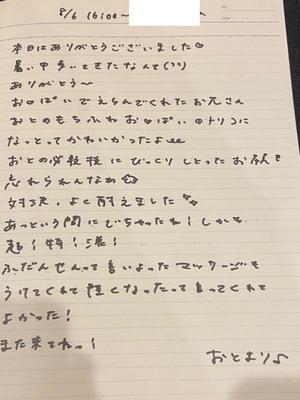 8/6 16:00〜
本日はありがとうございました♡
暑い中歩いてきたなんて(??)
ありがとう〜
お口ぱいでえらんでくれたお兄さん
おとのもちふわお口ぱいのトリコに
なっとってかわいかったよ
おとの必殺技にびっくりしとったお顔
忘れられんなぁ
対決、よく耐えました
あっという間にでちゃったね!しかも
超!特!濃!
ふだんせんって言いよったマッサージも
うけてくれて軽くなったって言ってくれて
よかった!
また来てねっ!
おとまり♪